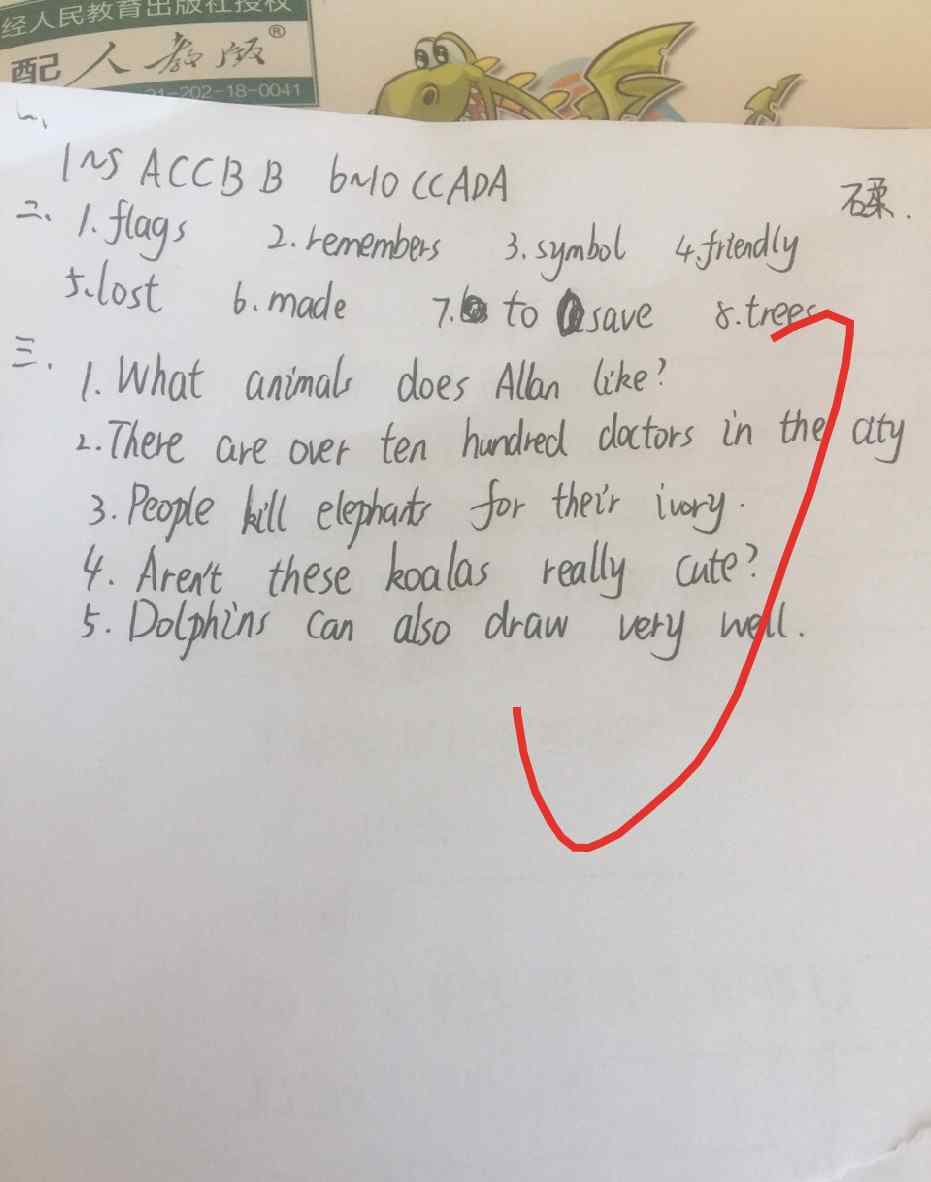 经人民教育出版社授权
配人教版®
01-202-18-0041
1~5 ACCBB 6~10 CCADA
二、1. flags 2. remembers 3. symbol 4. friendly
5. lost 6. made 7. to save 8. trees
三.
1. What animals does Allan like?
2. There are over ten hundred doctors in the city
3. People kill elephants for their ivory.
4. Aren't these koalas really cute?
5. Dolphins can also draw very well.